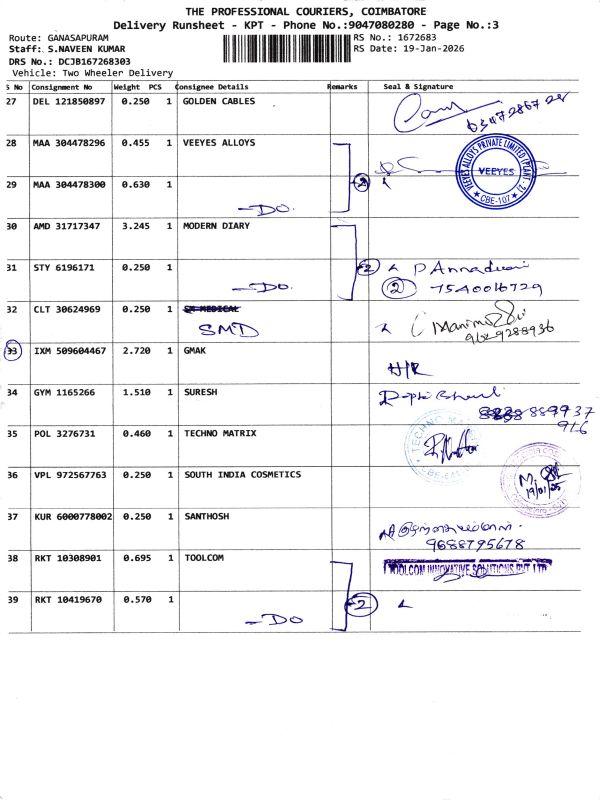 THE PROFESSIONAL COURIERS, COIMBATORE
Delivery Runsheet - KPT - Phone No.:9047080280 - Page No.:3
Route: GANASAPURAM
RS No.: 1672683
Staff: S.NAVEEN KUMAR
RS Date: 19-Jan-2026
DRS No.: DCJB167268303
Vehicle: Two Wheeler Delivery
S No Consignment No Weight PCS Consignee Details Remarks Seal & Signature
27 DEL 121850897 0.250 1 GOLDEN CABLES
28 MAA 304478296 0.455 1 VEEYES ALLOYS
VEEYES ALLOYS PRIVATE LIMITED (PLANT - 2)
VEEYES
CBE-107
29 MAA 304478300 0.630 1
-DO. 2
30 AMD 31717347 3.245 1 MODERN DIARY
31 STY 6196171 0.250 1
-DO. 2
2 7540016729
32 CLT 30624969 0.250 1 SM MEDICAL
SMD
9629288936
33 IXM 509604467 2.720 1 GMAK
H/R
34 GYM 1165266 1.510 1 SURESH
889937
916
35 POL 3276731 0.460 1 TECHNO MATRIX
36 VPL 972567763 0.250 1 SOUTH INDIA COSMETICS
37 KUR 6000778002 0.250 1 SANTHOSH
9688795678
38 RKT 10308901 0.695 1 TOOLCOM
TOOLCOM INNOVATIVE SOLUTIONS PVT LTD
39 RKT 10419670 0.570 1
-DO 2